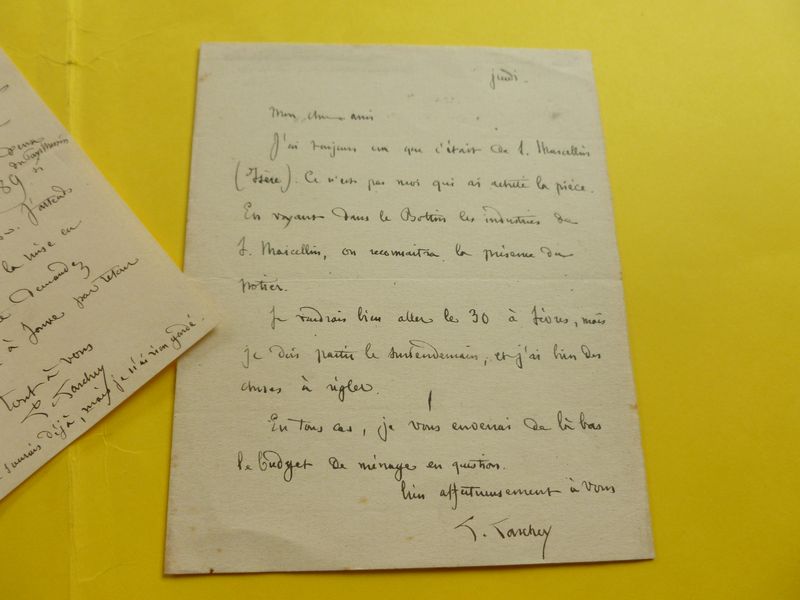 jeudi.
Mon cher ami
J'ai toujours cru que c'était de S. Marcellin
(Isère). Ce n'est pas moi qui ai la pièce.
En voyant dans le Bottin les industries de
S. Marcellin, on reconnaitra la présence du
potier.
Je voudrais bien aller le 30 à Sèvres, mais
je dois partir le surlendemain, et j'ai bien des
choses à régler.
En tous cas, je vous enverrai de là bas
le budget de ménage en question.
bien affectueusement à vous
89
J'attends
la mise en
demande
à Jouve par retour
tout à vous
déjà, mais je n'ai rien gardé.